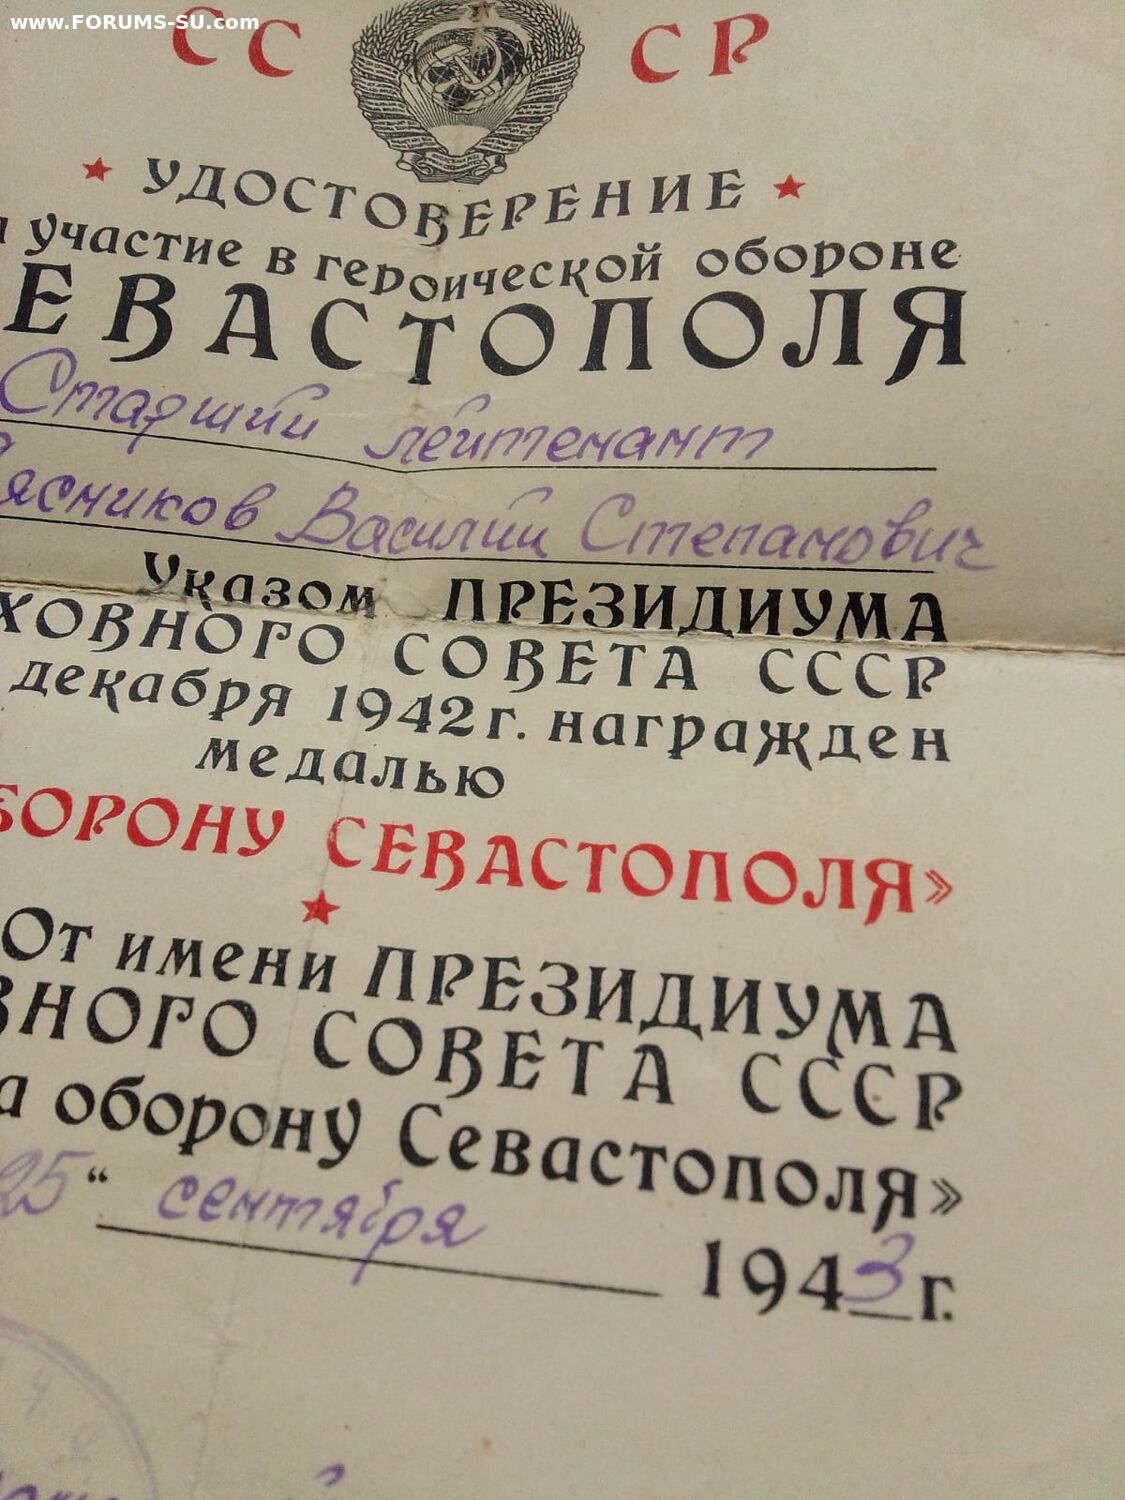 www.FORUMS-SU.com
СС СР
УДОСТОВЕРЕНИЕ
участие в героической обороне
ЕВАСТОПОЛЯ
Старший лейтенант
ясников Василий Степанович
Указом ПРЕЗИДИУМА
ХОВНОГО СОВЕТА СССР
декабря 1942 г. награжден
медалью
БОРОНУ СЕВАСТОПОЛЯ»
От имени ПРЕЗИДИУМА
ВНОГО СОВЕТА СССР
а оборону Севастополя»
25 “ сентября 1943 г.